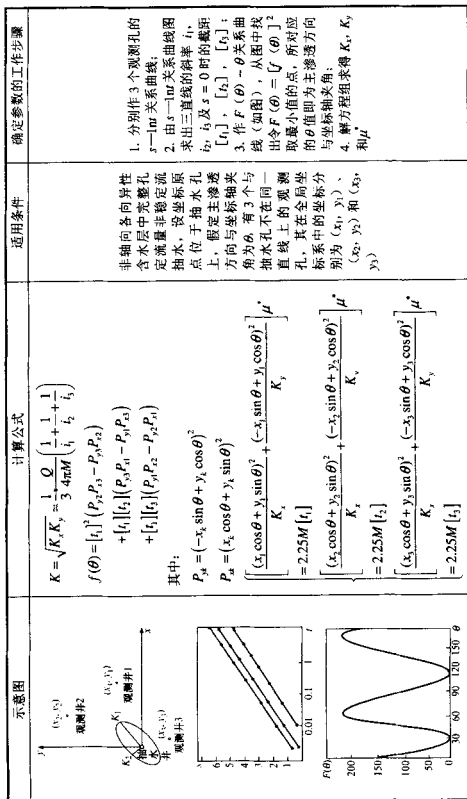 示意图
计算公式
适用条件
确定参数的工作步骤
y
(x₂, y₂)
观测井2
K₁
(x₁, y₁)
观测井1
K₂
抽水井
x
观测井3
s
6
5
4
3
2
1
0.01
0.1
1
t
F(θ)
200
100
0
30
60
90
120
150
θ
K = √(KₓKᵧ) ≈ (1/3)·(Q/4πM)(1/i₁ + 1/i₂ + 1/i₃)
f(θ) = [t₁]²(P_y2 P_x3 − P_y3 P_x2)
+ [t₁][t₂](P_y3 P_x1 − P_y1 P_x3)
+ [t₁][t₃](P_y1 P_x2 − P_y2 P_x1)
其中:
P_yk = (−x_k sinθ + y_k cosθ)²
P_xk = (x_k cosθ + y_k sinθ)²
[(x₁cosθ + y₁sinθ)²/Kₓ + (−x₁sinθ + y₁cosθ)²/Kᵧ]μ*
= 2.25M[t₁]
[(x₂cosθ + y₂sinθ)²/Kₓ + (−x₂sinθ + y₂cosθ)²/Kᵧ]μ*
= 2.25M[t₂]
[(x₃cosθ + y₃sinθ)²/Kᵧ + (−x₃sinθ + y₃cosθ)²/Kᵧ]μ*
= 2.25M[t₃]
非轴向各向异性
含水层中完整孔
定流量非稳定流
抽水,设坐标原
点位于抽水孔
上,假定主渗透
方向与坐标轴夹
角为θ,有3个与
抽水孔不在同一
直线上的观测
孔,其在全局坐
标系中的坐标分
别为(x₁, y₁)、
(x₂, y₂)和(x₃,
y₃)
1. 分别作3个观测孔的
s—lnt关系曲线;
2. 由s—lnt关系曲线图
求出三直线的斜率i₁,
i₂, i₃及s=0时的截距
[t₁], [t₂], [t₃];
3. 作F(θ)-θ关系曲
线(如图),从图中找
出令F(θ)=[f(θ)]²
取最小值的点,所对应
的θ值即为主渗透方向
与坐标轴夹角;
4. 解方程组求得Kₓ, Kᵧ
和μ*